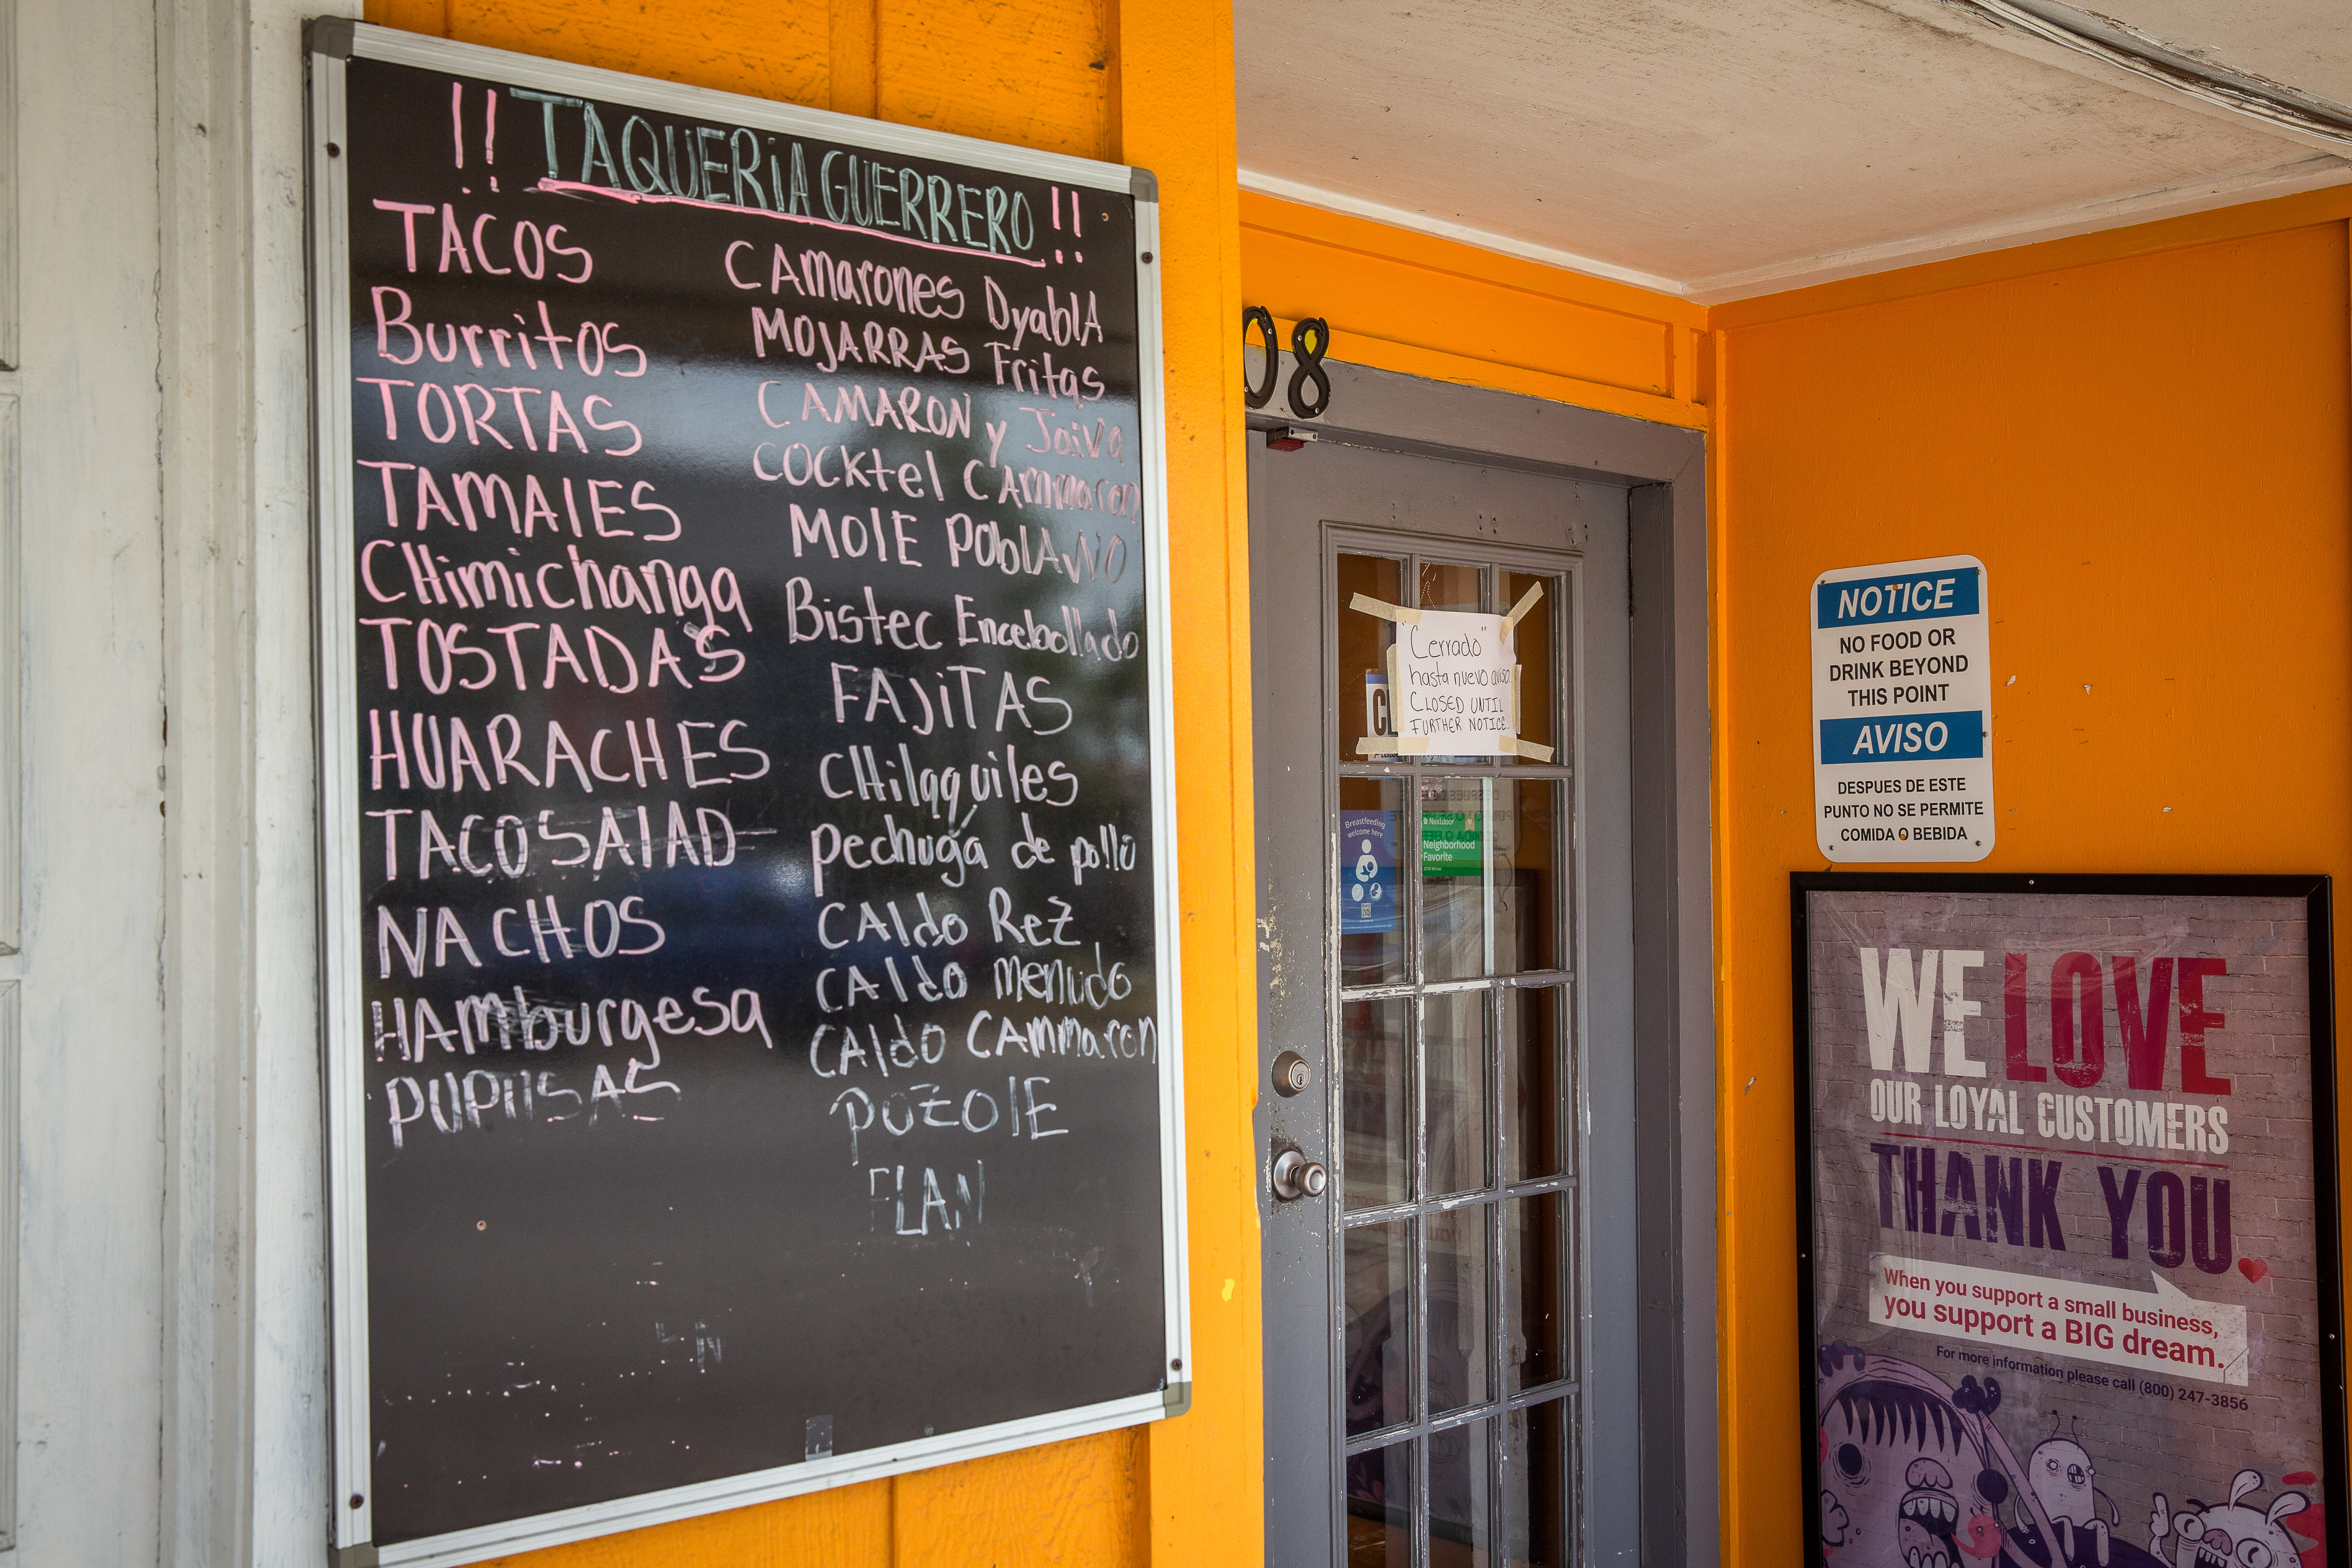 !! TAQUERIA GUERRERO !!
TACOS
Burritos
TORTAS
TAMALES
CHimichanga
TOSTADAS
HUARACHES
TACO SALAD
NACHOS
HAmburgesa
PUPUSAS
CAmarones DyablA
MOJARRAS Fritas
CAMARON y Jaiva
COCKtel CAmmaron
MOlE POblANO
Bistec Encebollado
FAJiTAS
CHilaquiles
Pechuga de pollo
CAldo Rez
CAldo menudo
CAldo CAmmaron
POZOlE
FLAN
08
"Cerrado"
hasta nuevo aviso.
CLOSED UNTIL
FURTHER NOTICE.
Breastfeeding
welcome here
Nextdoor
Neighborhood
Favorite
NOTICE
NO FOOD OR
DRINK BEYOND
THIS POINT
AVISO
DESPUES DE ESTE
PUNTO NO SE PERMITE
COMIDA O BEBIDA
WE LOVE
OUR LOYAL CUSTOMERS
THANK YOU
When you support a small business,
you support a BIG dream.
For more information please call (800) 247-3856